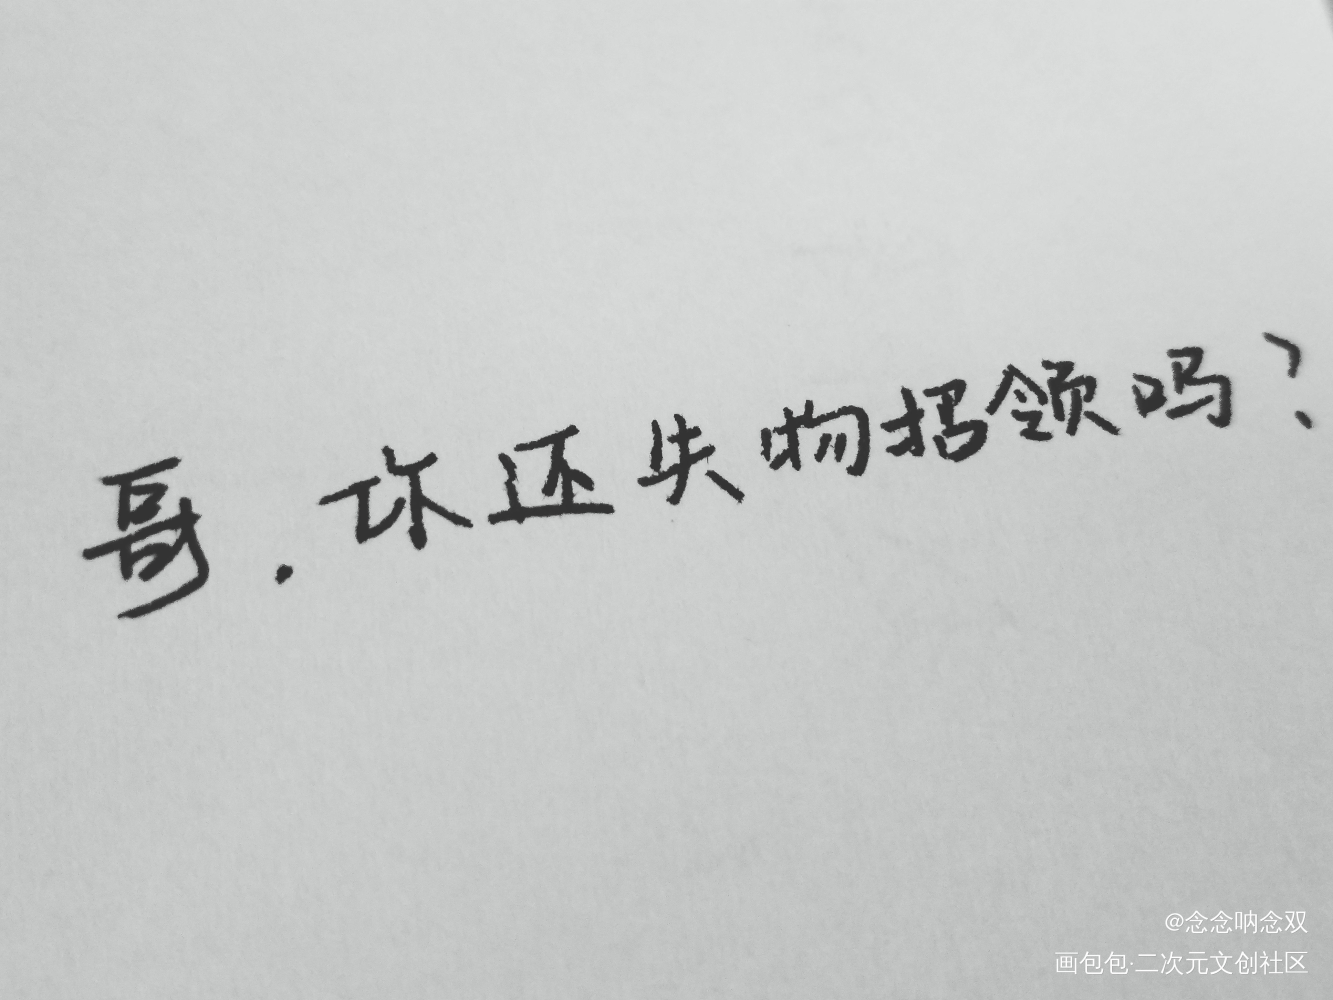 哥.你还失物招领吗?
@念念呐念双
画包包·二次元文创社区